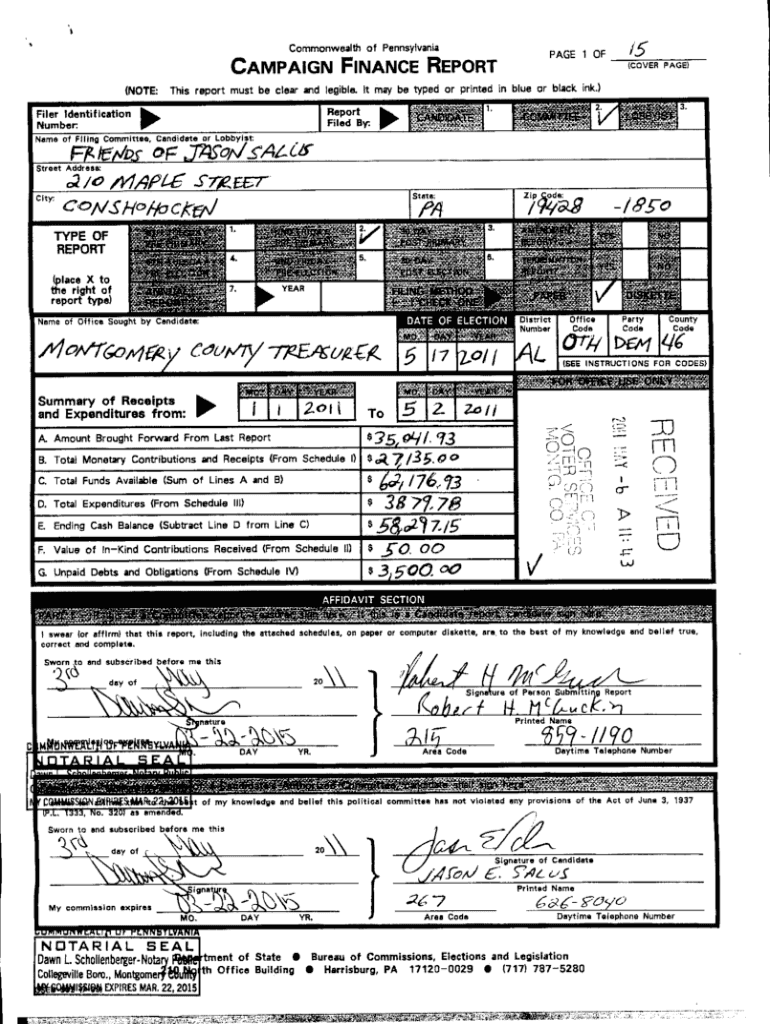 Commonwealth of Pennsylvania
CAMPAIGN FINANCE REPORT
PAGE 1 OF 15
(COVER PAGE)
(NOTE: This report must be clear and legible. It may be typed or printed in blue or black ink.)
Filer Identification Number:
Report Filed By:
CANDIDATE 1.
COMMITTEE 2. ✓
LOBBYIST 3.
Name of Filing Committee, Candidate or Lobbyist:
FRIENDS OF JASON SALUS
Street Address:
210 MAPLE STREET
City: CONSHOHOCKEN
State: PA
Zip Code: 19428 -1850
TYPE OF REPORT
(place X to the right of report type)
1.
2. ✓
3.
4.
5.
6.
7.
YEAR
FILING METHOD
CHECK ONE
PAPER ✓
DISKETTE
Name of Office Sought by Candidate:
MONTGOMERY COUNTY TREASURER
DATE OF ELECTION
MO. DAY YEAR
5 17 2011
District Number
AL
Office Code
OTH
Party Code
DEM
County Code
46
(SEE INSTRUCTIONS FOR CODES)
FOR OFFICE USE ONLY
Summary of Receipts and Expenditures from:
MO. DAY YEAR
1 1 2011
To
MO. DAY YEAR
5 2 2011
A. Amount Brought Forward From Last Report $ 35,041.93
B. Total Monetary Contributions and Receipts (From Schedule I) $ 27,135.00
C. Total Funds Available (Sum of Lines A and B) $ 62,176.93
D. Total Expenditures (From Schedule III) $ 3879.78
E. Ending Cash Balance (Subtract Line D from Line C) $ 58,297.15
F. Value of In-Kind Contributions Received (From Schedule II) $ 50.00
G. Unpaid Debts and Obligations (From Schedule IV) $ 3,500.00
RECEIVED
2011 MAY -6 A 11:43
OFFICE OF
VOTER SERVICES
MONTG. CO. PA.
✓
AFFIDAVIT SECTION
I swear (or affirm) that this report, including the attached schedules, on paper or computer diskette, are to the best of my knowledge and belief true, correct and complete.
Sworn to and subscribed before me this
3rd day of May 2011
Signature
My commission expires 03-22-2015
MO. DAY YR.
Robert H McGuckin
Signature of Person Submitting Report
Robert H. McGuckin
Printed Name
215 859-1190
Area Code Daytime Telephone Number
COMMONWEALTH OF PENNSYLVANIA
NOTARIAL SEAL
Dawn L. Schollenberger-Notary Public
MY COMMISSION EXPIRES MAR. 22, 2015
st of my knowledge and belief this political committee has not violated any provisions of the Act of June 3, 1937
(P.L. 1333, No. 320) as amended.
Sworn to and subscribed before me this
3rd day of May 2011
Signature
My commission expires 03-22-2015
MO. DAY YR.
Signature of Candidate
JASON E. SALUS
Printed Name
267 626-8040
Area Code Daytime Telephone Number
COMMONWEALTH OF PENNSYLVANIA
NOTARIAL SEAL
Dawn L. Schollenberger-Notary Public
Collegeville Boro., Montgomery County
MY COMMISSION EXPIRES MAR. 22, 2015
Department of State ● Bureau of Commissions, Elections and Legislation
210 North Office Building ● Harrisburg, PA 17120-0029 ● (717) 787-5280